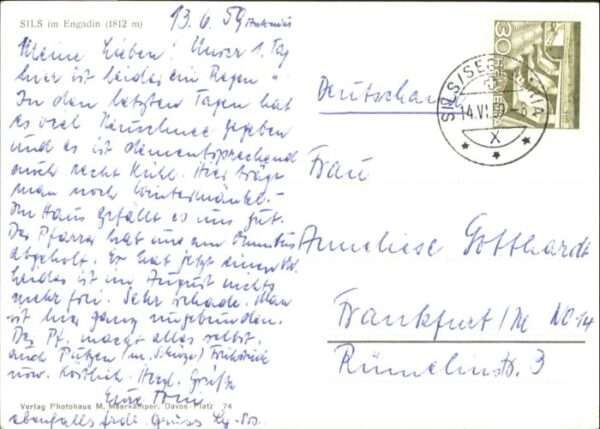 SILS im Engadin (1812 m)
13.6.59 Antonius
Meine Lieben! Unser 1. Tag
hier ist leider ein Regen "
In den letzten Tagen hat
es viel Neuschnee gegeben
und es ist dementsprechend
auch recht kühl. Hier trägt
man noch Wintermäntel. –
Im Haus gefällt es uns gut.
Der Pfarrer hat uns am Omnibus
abgeholt. Er hat jetzt einen
Leider ist im August nichts
mehr frei. Sehr schade. Man
ist hier ganz ungebunden.
Der Pf. macht alles selbst,
auch Putzen (m. Schürze) Frühstück
usw. Köstlich. Herzl. Grüße
Eure
ebenfalls Gruss
Verlag Photohaus M. Maerkamper, Davos-Platz 74
30
HELVETIA
SILS/SEGL
14.VI.
X
Deutschland
Frau
Anneliese Gotthardt
Frankfurt/M NO-14
Rümelinstr. 3